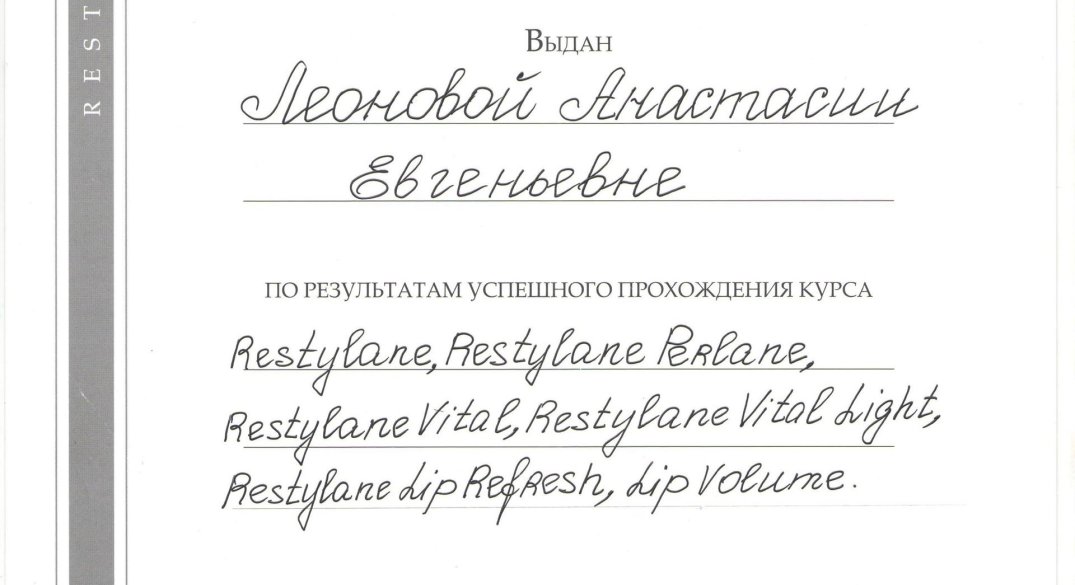 REST
Выдан
Леоновой Анастасии
Евгеньевне
ПО РЕЗУЛЬТАТАМ УСПЕШНОГО ПРОХОЖДЕНИЯ КУРСА
Restylane, Restylane Perlane,
Restylane Vital, Restylane Vital Light,
Restylane Lip Refresh, Lip Volume.